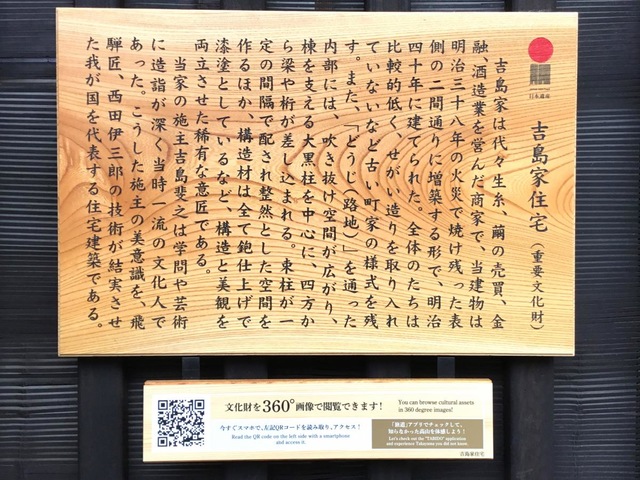 日本遺産
吉島家住宅（重要文化財）
吉島家は代々生糸、繭の売買、金
融、酒造業を営んだ商家で、当建物は
明治三十八年の火災で焼け残った表
側の二間通りに増築する形で、明治
四十年に建てられた。全体のたちは
比較的低く、せがい造りを取り入れ
ていないなど古い町家の様式を残
す。また、「どうじ（路地）」を通った
内部には、吹き抜け空間が広がり、
棟を支える大黒柱を中心に、四方か
ら梁や桁が差し込まれる。束柱が一
定の間隔で配され整然とした空間を
作るほか、構造材は全て鉋仕上げで
漆塗としているなど、構造と美観を
両立させた稀有な意匠である。
当家の施主吉島斐之は学問や芸術
に造詣が深く当時一流の文化人で
あった。こうした施主の美意識を、飛
騨匠、西田伊三郎の技術が結実させ
た我が国を代表する住宅建築である。
文化財を360°画像で閲覧できます！
You can browse cultural assets
in 360 degree images!
今すぐスマホで、左記QRコードを読み取り、アクセス！
Read the QR code on the left side with a smartphone
and access it.
アプリでチェックして、
知らなかった高山を体感しよう！
Let's check out the "TABIDO" application
and experience Takayama you did not know.
吉島家住宅